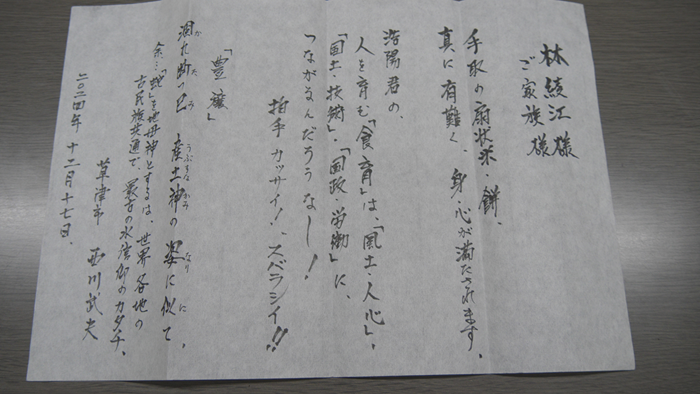 林 綾江様
ご家族様
手取の扇状米・餅、
真に有難く、身・心が満たされます。
浩陽君の、
人を育む「食育」は、「風土・人心」、
「国土・技術」・「国政・労働」に、
つながるんだろうなー!
拍手カッサイ!、スバラシイ!!
「豊穣」
涸れ断つ巳 産土神の 姿に似て、
余…「蛇」を地母神とするは、世界各地の
古民族共通で、最古の水信仰のカタチ。
二〇二四年 十二月十七日、
草津市 西川武夫